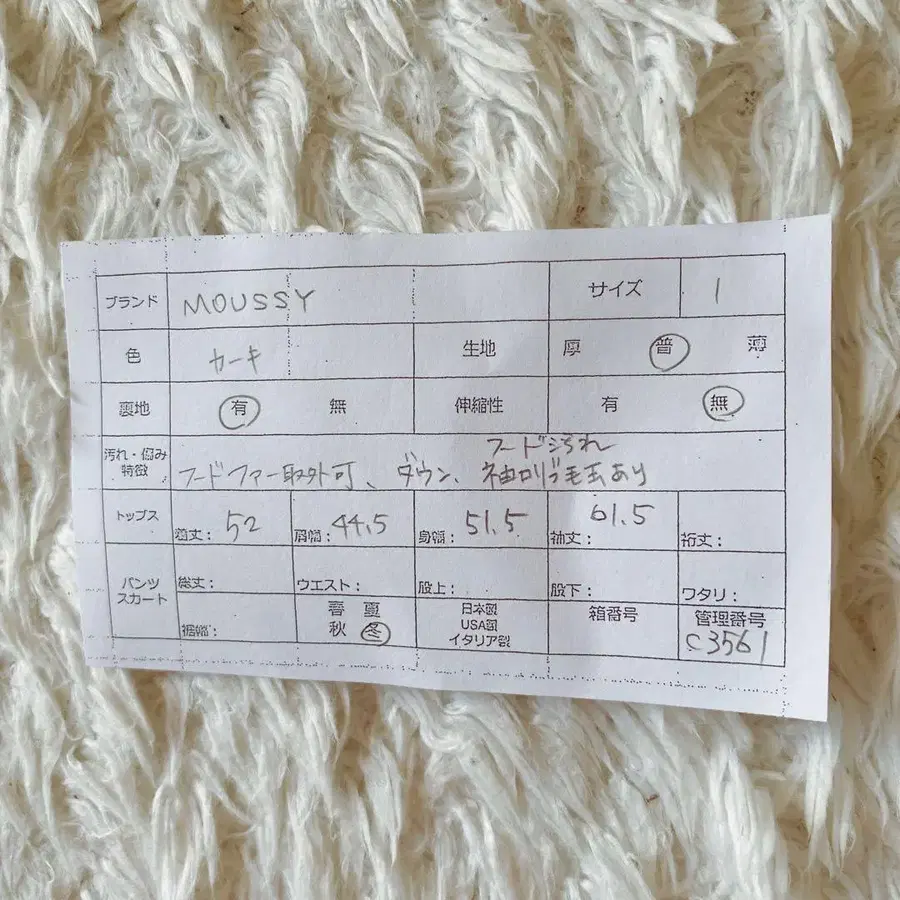 ブランド MOUSSY サイズ 1
色 カーキ 生地 厚 普 薄
裏地 有 無 伸縮性 有 無
フード汚れ
汚れ・傷み
特徴 フードファー取外可、ダウン、袖口リブ毛玉あり
トップス 着丈: 52 肩幅: 44.5 身幅: 51.5 袖丈: 61.5 裄丈:
パンツ
スカート 総丈: ウエスト: 股上: 股下: ワタリ:
裾幅: 春 夏
秋 冬 日本製
USA製
イタリア製 箱番号 管理番号
C3561